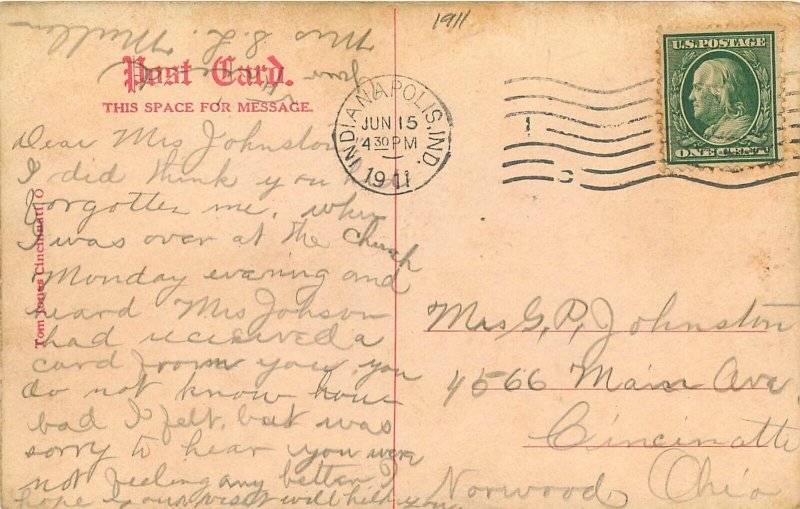 1911
Post Card.
THIS SPACE FOR MESSAGE.
INDIANAPOLIS, IND.
JUN 15
4 30 PM
1911
U.S. POSTAGE
ONE CENT
Tom Jones Cincinnati O
Dear Mrs Johnston
I did think you
forgotten me, when
I was over at the Church
Monday evening and
heard Mrs Johnson
had received a
card from you you
do not know how
bad I felt, but was
sorry to hear you were
not feeling any better I
hope your visit will help you
Mrs S. L.
Mrs G, P, Johnston
4566 Main Ave
Cincinatti
Norwood, Ohio